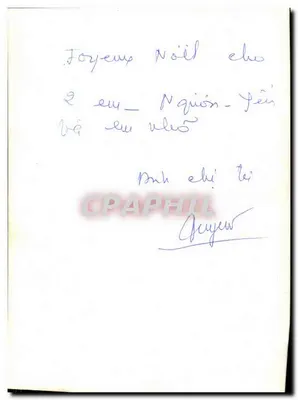 Joyeux Nöël cho
2 em _ Nguón - Yến
và em nhỏ
Anh chị
CPAPHIL